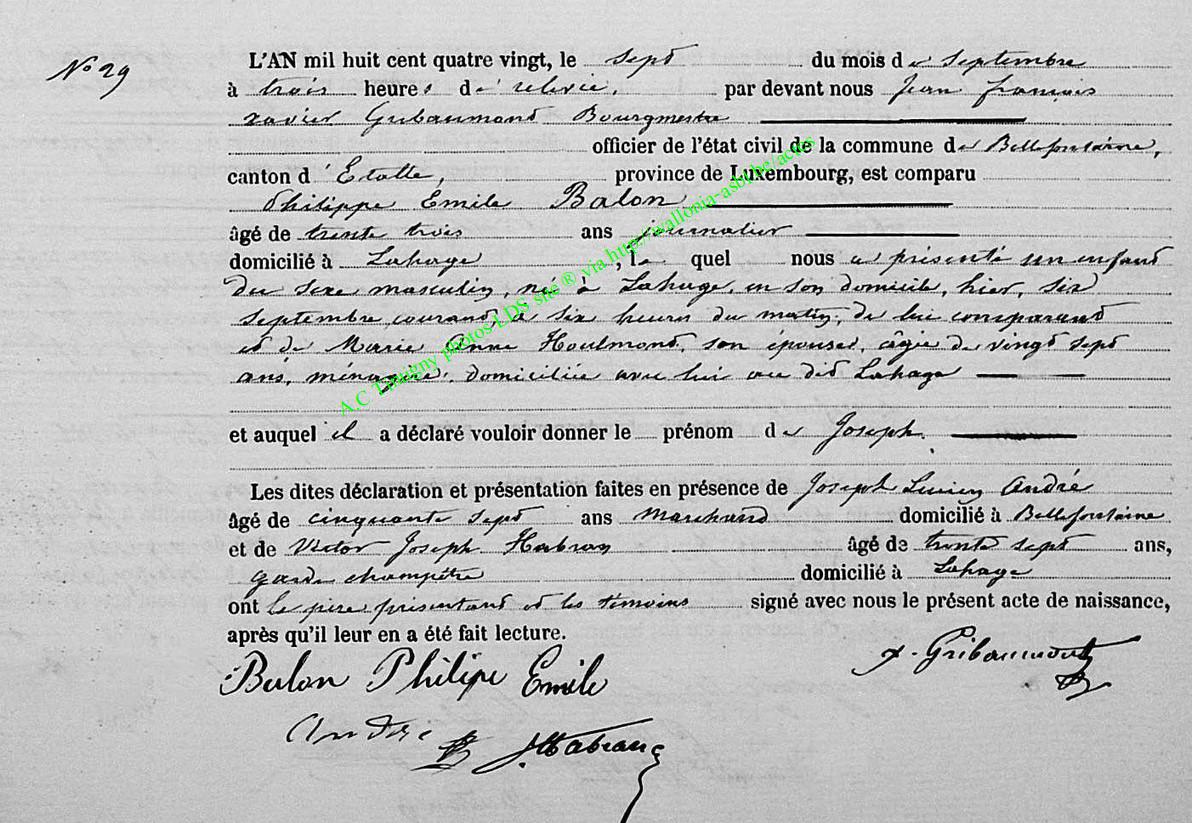 N° 29
L'AN mil huit cent quatre vingt, le sept du mois de Septembre
à trois heures de relevée, par devant nous Jean François
Xavier Gribaumont Bourgmestre
officier de l'état civil de la commune de Bellefontaine,
canton d'Etalle, province de Luxembourg, est comparu
Philippe Emile Balon
âgé de trente trois ans journalier
domicilié à Lahage, le quel nous a présenté un enfant
du sexe masculin, né à Lahage, en son domicile, hier, six
septembre courant, à six heures du matin, de lui comparant
et de Marie Anne Houlmont, son épouse, âgée de vingt sept
ans, ménagère, domiciliée avec lui au dit Lahage
et auquel il a déclaré vouloir donner le prénom de Joseph.
Les dites déclaration et présentation faites en présence de Joseph Lucien André
âgé de cinquante sept ans Marchand domicilié à Bellefontaine
et de Victor Joseph Habran âgé de trente sept ans,
garde champêtre domicilié à Lahage
ont le père présentant et les témoins signé avec nous le présent acte de naissance,
après qu'il leur en a été fait lecture.
Balon Philipe Emile
x. Gribaumont
André
J Habran
A.C Tintigny photos LDS site ® via http://wallonia-asbl.be/actes